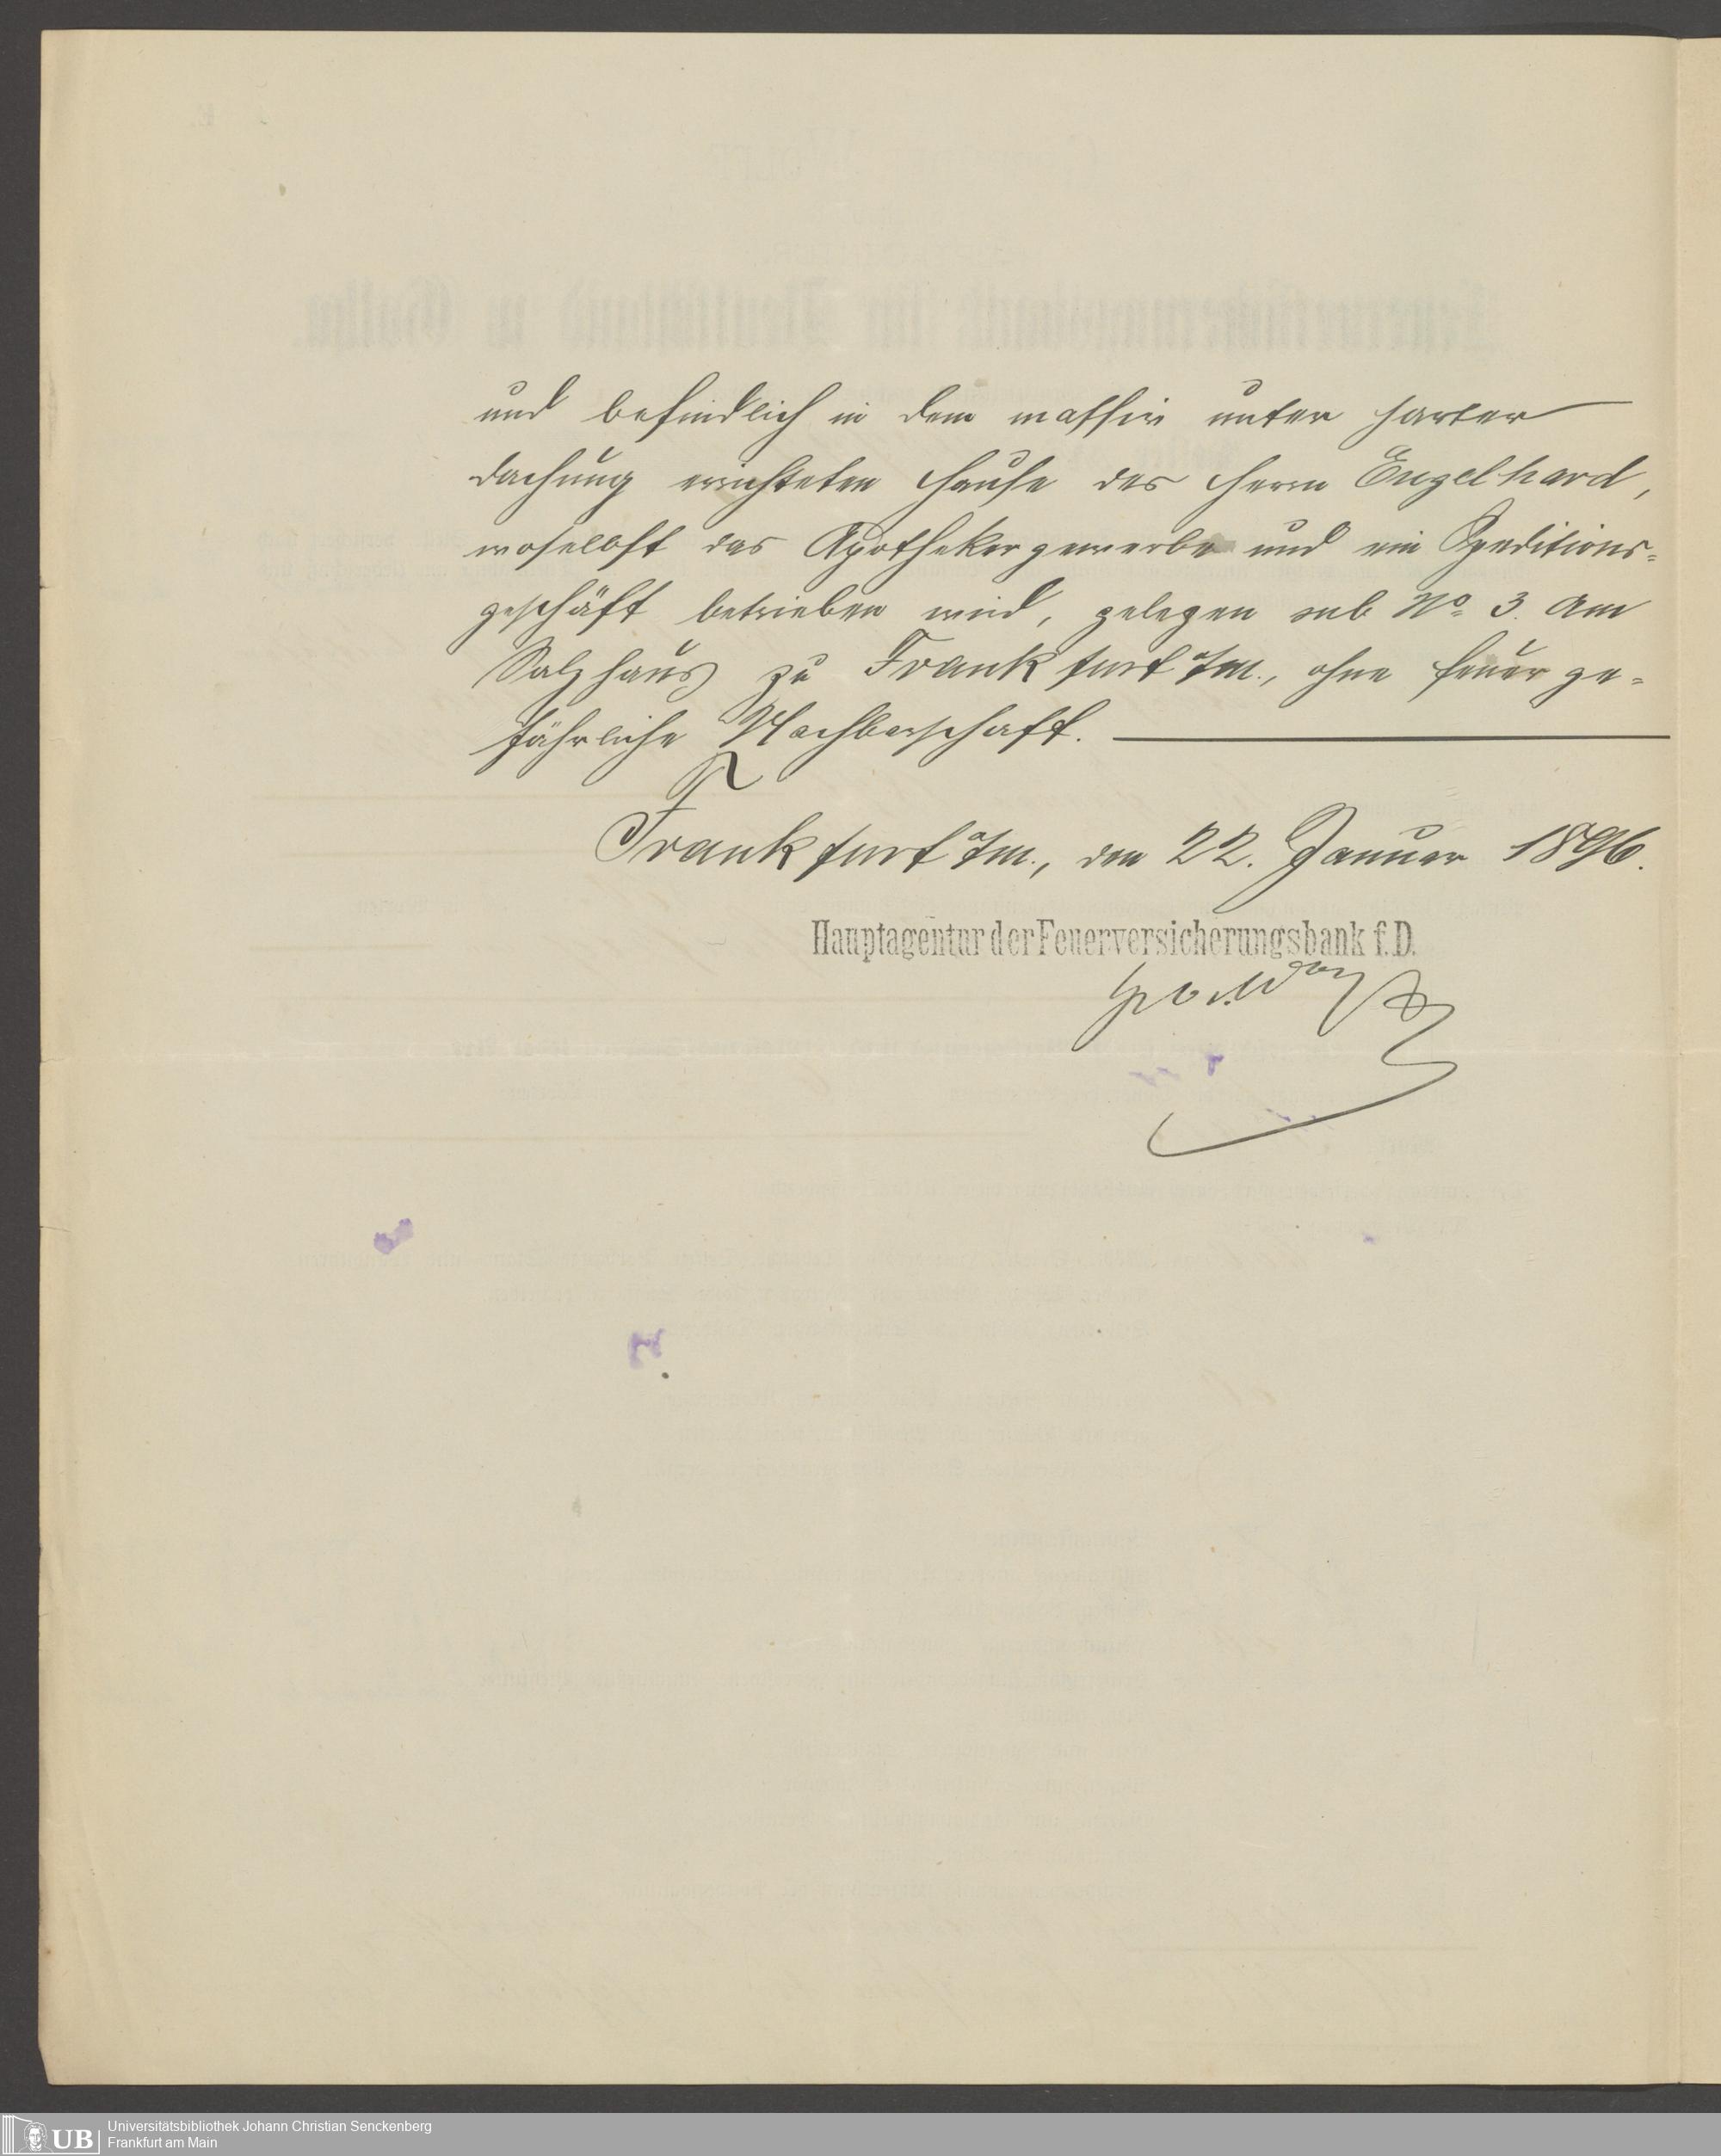 und befindlich in dem massiv unter harter
dachung errichteten Hause des Herrn Engelhard,
woselbst das Apothekergewerbe und ein Speditions=
geschäft betrieben wird, gelegen sub No. 3. Am
Salzhaus zu Frankfurt a/M., ohne feuerge=
fährliche Nachbarschaft.
Frankfurt a/M., den 22. Januar 1896.
Hauptagentur der Feuerversicherungsbank f. D.
UB
Universitätsbibliothek Johann Christian Senckenberg
Frankfurt am Main